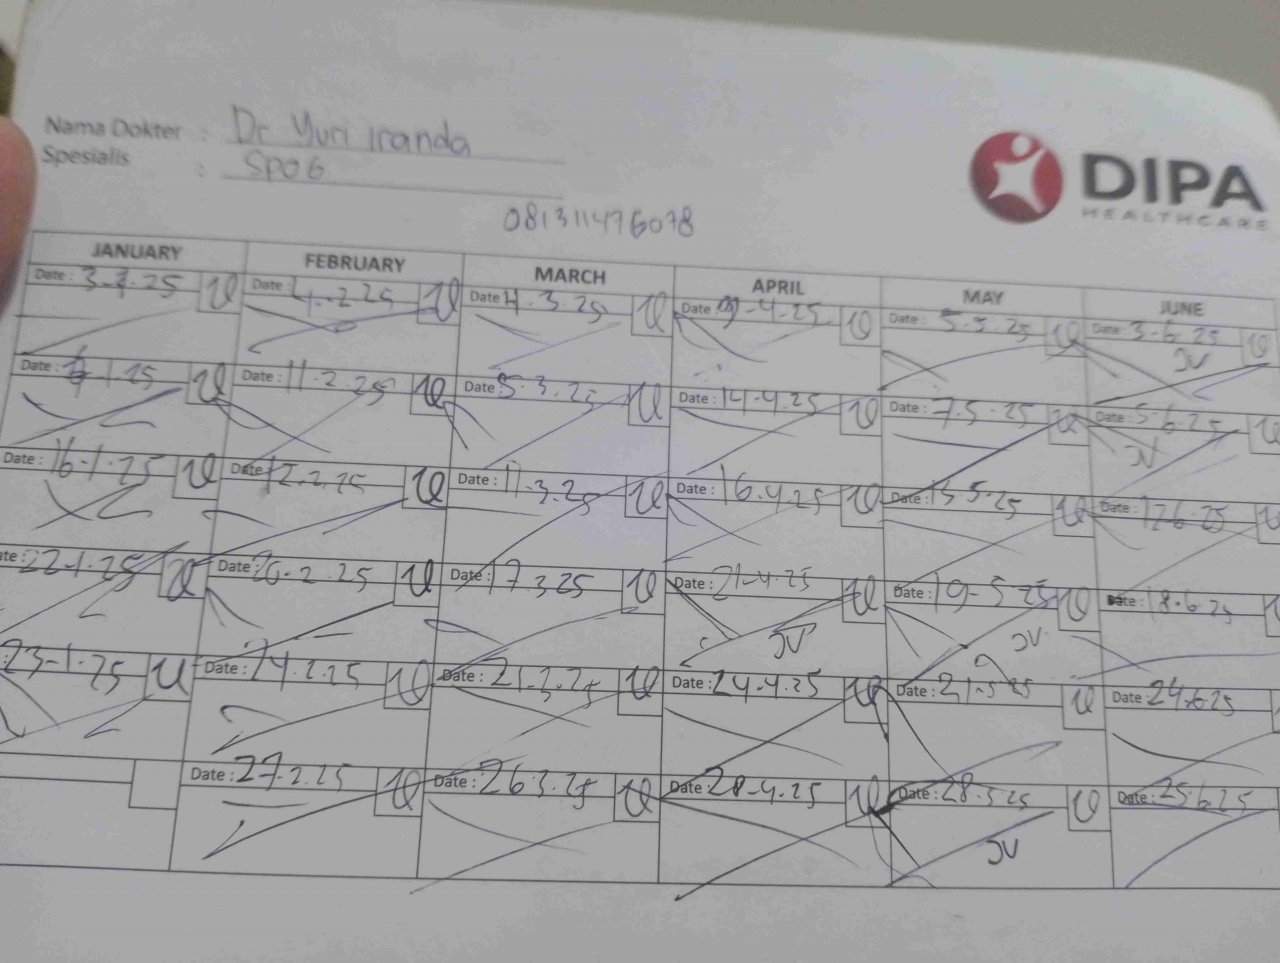 Nama Dokter : Dr Yuri Iranda
Spesialis : SPOG
081311476078
DIPA
HEALTHCARE
JANUARY FEBRUARY MARCH APRIL MAY JUNE
Date : 3-1-25 Date : 4-2-25 Date : 4.3.25 Date : 9-4-25 Date : 5.5.25 Date : 3-6.25
JV
Date : 1.25 Date : 11-2.25 Date : 5.3.25 Date : 14-4.25 Date : 7.5.25 Date : 5-6.25
JV
Date : 16-1-25 Date : 12.2.25 Date : 11.3.25 Date : 16.4.25 Date : 15.5.25 Date : 12.6.25
Date : 22-1.25 Date : 20-2.25 Date : 17.3.25 Date : 21-4.25 Date : 19-5.25 Date : 18.6.25
JV JV
23-1.25 Date : 24.2.25 Date : 21.3.25 Date : 24-4.25 Date : 21.5.25 Date : 24.6.25
Date : 27.2.25 Date : 26.3.25 Date : 28-4.25 Date : 28.5.25 Date : 25.6.25
JV